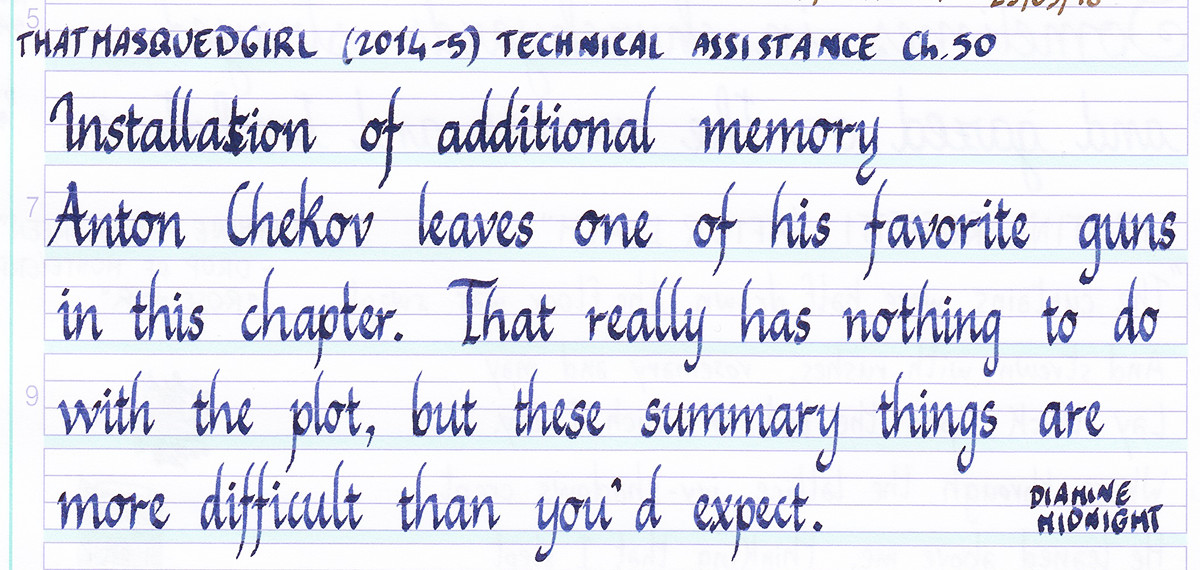 5
THATMASQUEDGIRL (2014-5) TECHNICAL ASSISTANCE Ch.50
Installation of additional memory
7
Anton Chekov leaves one of his favorite guns
in this chapter. That really has nothing to do
9
with the plot, but these summary things are
more difficult than you'd expect.
DIAMINE
MIDNIGHT